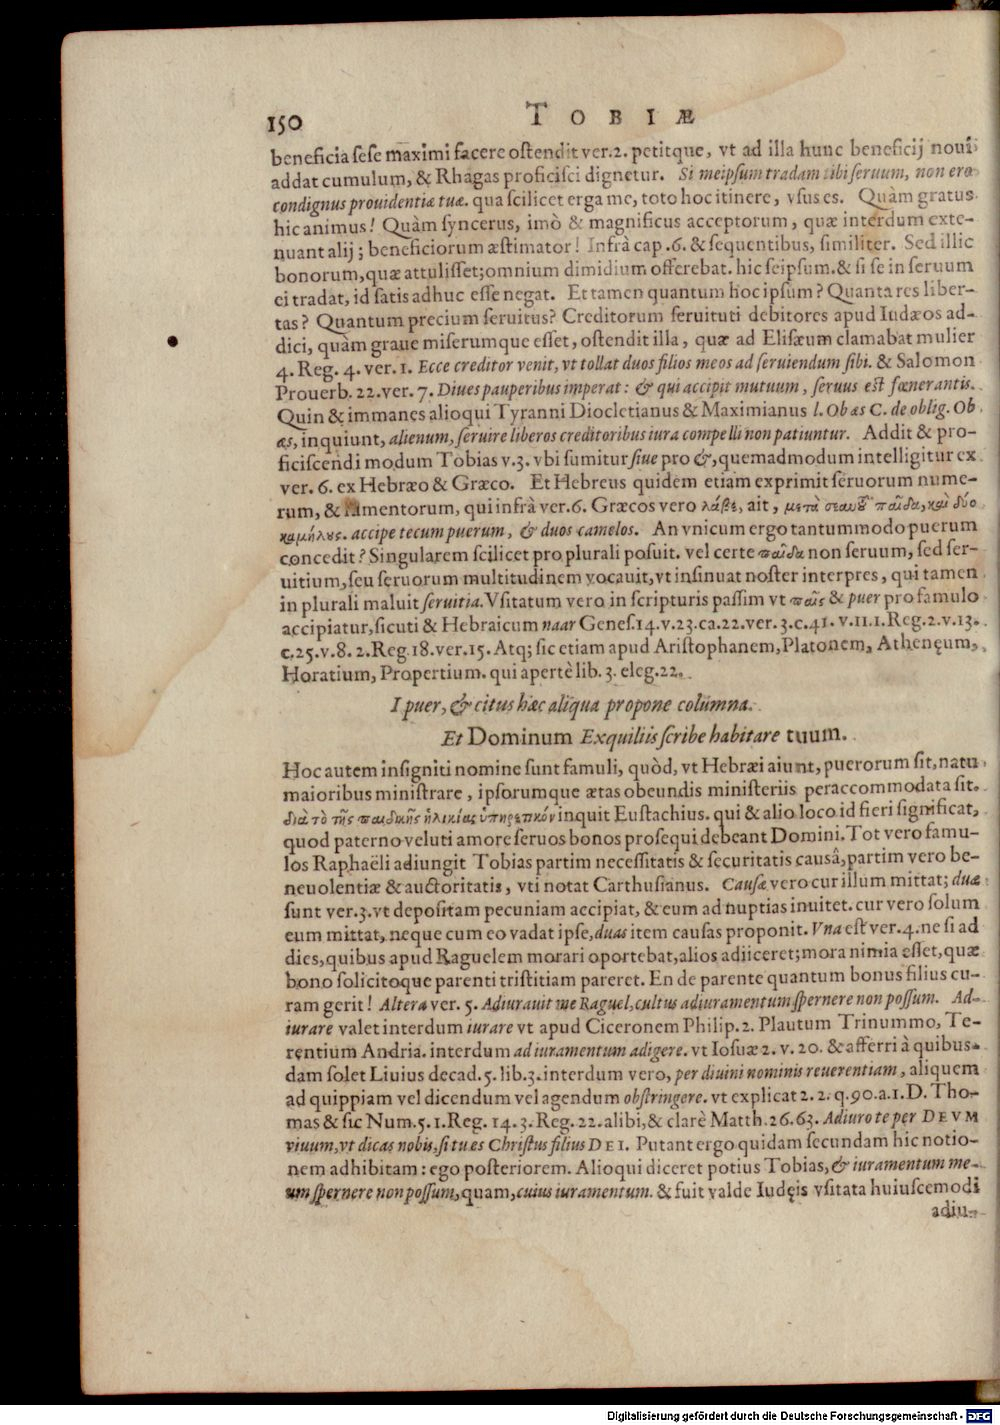 150 TOBIÆ
beneficia ſeſe maximi facere oſtendit ver.2. petitque, vt ad illa hunc beneficij noui
addat cumulum, & Rhagas proficiſci dignetur. Si meipſum tradam tibi ſeruum, non ero
condignus prouidentiæ tuæ. qua ſcilicet erga me, toto hoc itinere, vſus es. Quàm gratus
hic animus! Quàm ſyncerus, imò & magnificus acceptorum, quæ interdum exte-
nuant alij; beneficiorum æſtimator! Infrà cap. 6. & ſequentibus, ſimiliter. Sed illic
bonorum, quæ attuliſſet; omnium dimidium offerebat. hic ſeipſum. & ſi ſe in ſeruum
ei tradat, id ſatis adhuc eſſe negat. Et tamen quantum hoc ipſum? Quanta res liber-
tas? Quantum precium ſeruitus? Creditorum ſeruituti debitores apud Iudæos ad-
dici, quàm graue miſerumque eſſet, oſtendit illa, quæ ad Eliſæum clamabat mulier
4. Reg. 4. ver. 1. Ecce creditor venit, vt tollat duos filios meos ad ſeruiendum ſibi. & Salomon
Prouerb. 22. ver. 7. Diues pauperibus imperat: & qui accipit mutuum, ſeruus eſt fœnerantis.
Quin & immanes alioqui Tyranni Diocletianus & Maximianus l. Ob æs C. de oblig. Ob
æs, inquiunt, alienum, ſeruire liberos creditoribus iura compelli non patiuntur. Addit & pro-
ficiſcendi modum Tobias v.3. vbi ſumitur ſiue pro &, quemadmodum intelligitur ex
ver. 6. ex Hebræo & Græco. Et Hebreus quidem etiam exprimit ſeruorum nume-
rum, & iumentorum, qui infrà ver. 6. Græcos vero λάβε, ait, μετὰ σεαυτοῦ παῖδα, καὶ δύο
καμήλους. accipe tecum puerum, & duos camelos. An vnicum ergo tantummodo puerum
concedit? Singularem ſcilicet pro plurali poſuit. vel certe παῖδα non ſeruum, ſed ſer-
uitium, ſeu ſeruorum multitudinem vocauit, vt inſinuat noſter interpres, qui tamen
in plurali maluit ſeruitia. Vſitatum vero in ſcripturis paſſim vt παῖς & puer pro famulo
accipiatur, ſicuti & Hebraicum naar Geneſ. 14. v. 23. ca. 22. ver. 3. c. 41. v. 11. 1. Reg. 2. v. 13.
c. 25. v. 8. 2. Reg. 18. ver. 15. Atq; ſic etiam apud Ariſtophanem, Platonem, Athenęum,
Horatium, Propertium. qui apertè lib. 3. eleg. 22.
I puer, & citus hæc aliqua propone columna.
Et Dominum Exquiliis ſcribe habitare tuum.
Hoc autem inſigniti nomine ſunt famuli, quòd, vt Hebræi aiunt, puerorum ſit, natu
maioribus miniſtrare, ipſorumque ætas obeundis miniſteriis peraccommodata ſit.
διὰ τὸ τῆς παιδικῆς ἡλικίας ὑπηρετικόν inquit Euſtachius. qui & alio loco id fieri ſignificat,
quod paterno veluti amore ſeruos bonos proſequi debeant Domini. Tot vero famu-
los Raphaëli adiungit Tobias partim neceſſitatis & ſecuritatis causâ, partim vero be-
neuolentiæ & auctoritatis, vti notat Carthuſianus. Cauſæ vero cur illum mittat; duæ
ſunt ver. 3. vt depoſitam pecuniam accipiat, & eum ad nuptias inuitet. cur vero ſolum
eum mittat, neque cum eo vadat ipſe, duas item cauſas proponit. Vna eſt ver. 4. ne ſi ad
dies, quibus apud Raguelem morari oportebat, alios adiiceret; mora nimia eſſet, quæ
bono ſolicitoque parenti triſtitiam pareret. En de parente quantum bonus filius cu-
ram gerit! Altera ver. 5. Adiurauit me Raguel, cuius adiuramentum ſpernere non poſſum. Ad-
iurare valet interdum iurare vt apud Ciceronem Philip. 2. Plautum Trinummo, Te-
rentium Andria. interdum ad iuramentum adigere. vt Ioſuæ 2. v. 20. & afferri à quibus-
dam ſolet Liuius decad. 5. lib. 3. interdum vero, per diuini nominis reuerentiam, aliquem
ad quippiam vel dicendum vel agendum obſtringere. vt explicat 2. 2. q. 90. a. 1. D. Tho-
mas & ſic Num. 5. 1. Reg. 14. 3. Reg. 22. alibi, & clarè Matth. 26. 63. Adiuro te per DEVM
viuum, vt dicas nobis, ſi tu es Chriſtus filius DEI. Putant ergo quidam ſecundam hic notio-
nem adhibitam: ego poſteriorem. Alioqui diceret potius Tobias, & iuramentum me-
um ſpernere non poſſum, quam, cuius iuramentum. & fuit valde Iudęis vſitata huiuſcemodi
adiu-
Digitalisierung gefördert durch die Deutsche Forschungsgemeinschaft - DFG